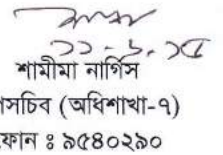 ১১-৬-১৫
শামীমা নার্গিস
সচিব (অধিশাখা-৭)
ফোন ঃ ৯৫৪০২৯০